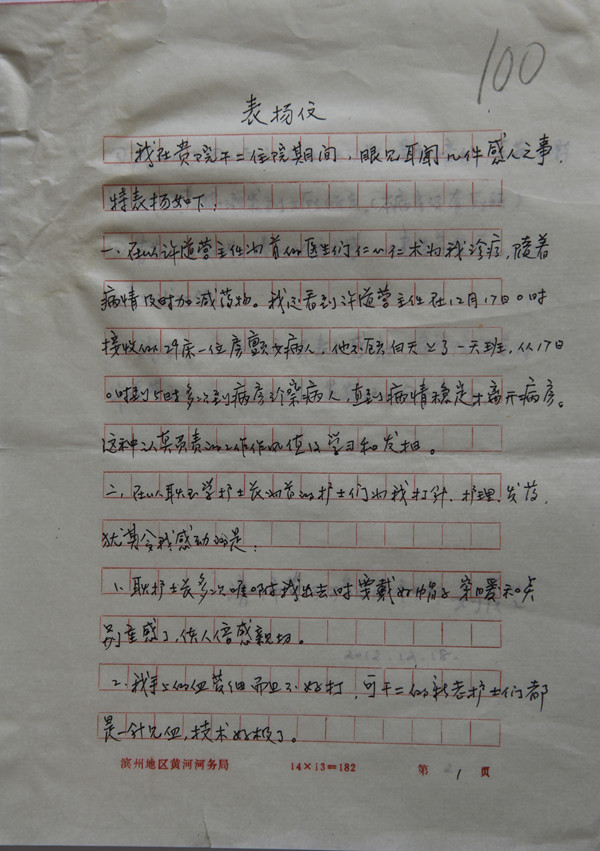 100
表扬仪
我在黄院干二住院期间，眼见耳闻几件感人之事，
特表扬如下：
一、在以许道营主任为首的医生们仁心仁术为我诊疗，随着
病情及时加减药物。我还看到许道营主任在12月17日0时
接收的29床一位房颤女病人，他不顾白天上了一天班，从17日
0时到5时多次到病房诊察病人，直到病情稳定才离开病房。
这种认真负责的工作作风值得学习和发扬。
二、在以耿玉学护士长为首的护士们为我打针、护理、发药，
犹其令我感动的是：
1、耿护士长多次嘱咐我出去时要戴好帽子穿暖和点
别重感了，使人倍感亲切。
2012.12.18.
2、我手上的血管细而且不好打，可干二的新老护士们都
是一针见血，技术好极了。
滨州地区黄河河务局 14×13=182 第 1 页